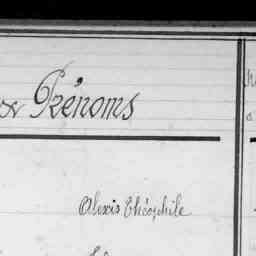 Prénoms
Alexis Théophile